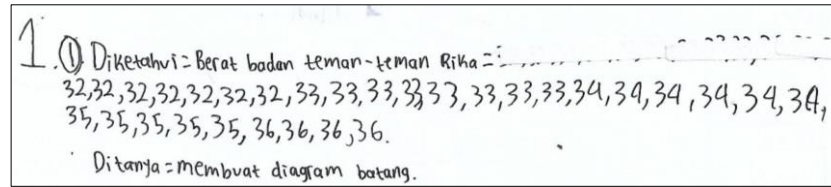 1. ① Diketahui = Berat badan teman-teman Rika =
32,32,32,32,32,32,32,33,33,33,33,33,33,33,33,34,34,34,34,34,34,
35,35,35,35,35,36,36,36,36.
Ditanya = membuat diagram batang.